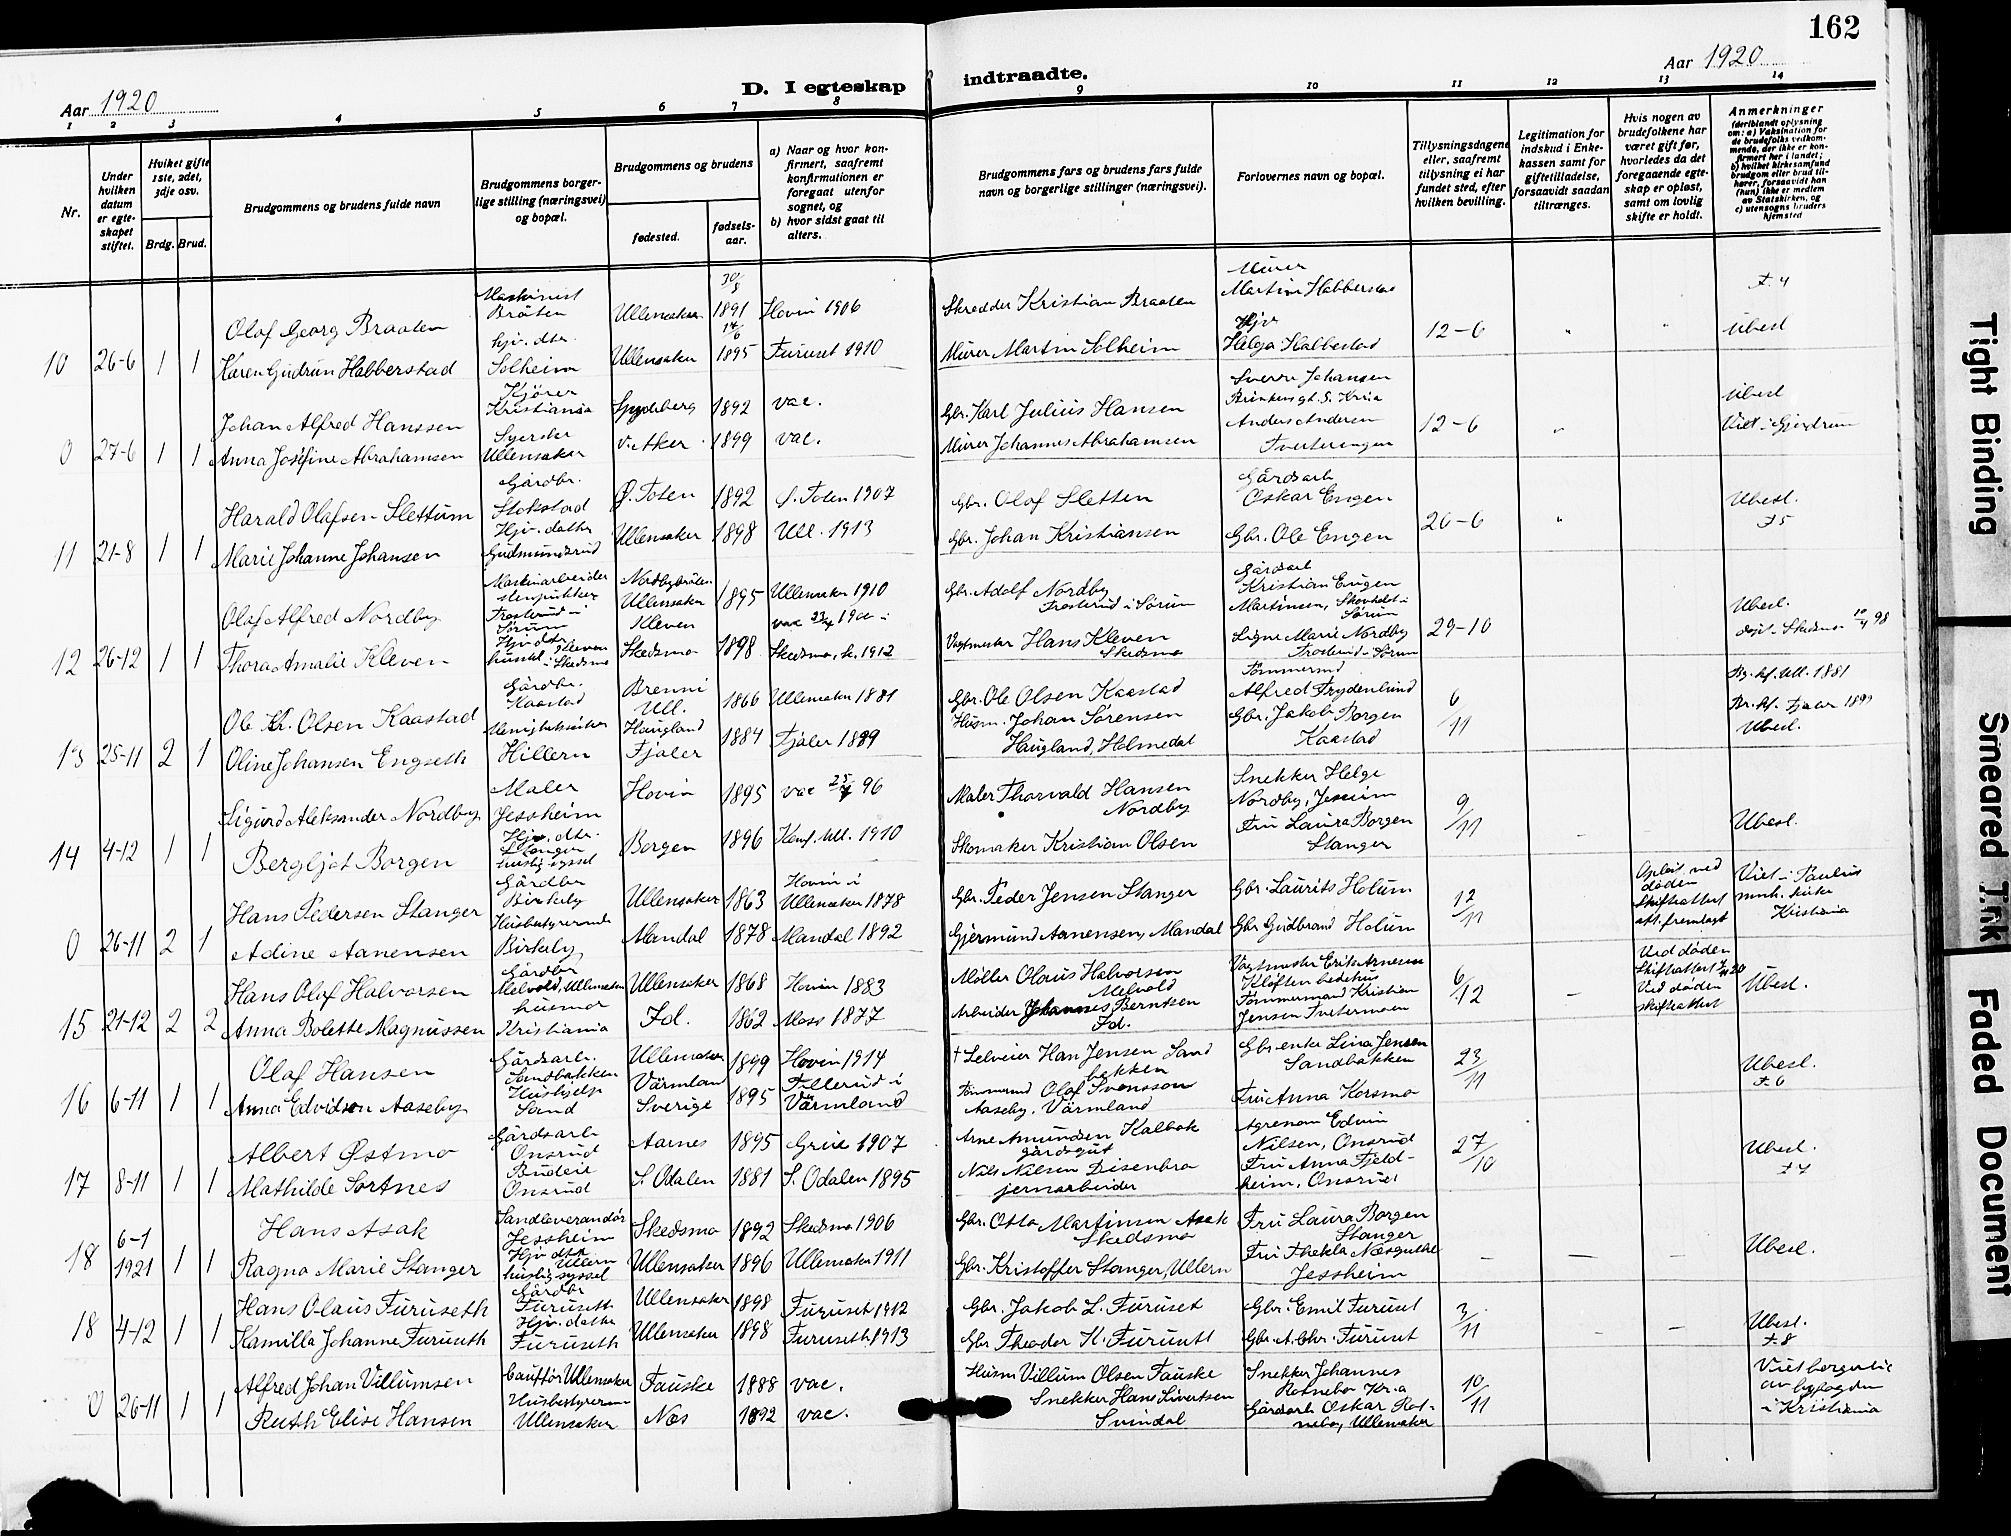 162
Aar 1920
D. I egteskap indtraadte.
Aar 1920
1 2 3 4 5 6 7 8 9 10 11 12 13 14
Nr.
Under hvilken datum er egteskapet stiftet.
Hvilket gifte 1ste, 2det, 3dje osv.
Brdg. Brud.
Brudgommens og brudens fulde navn
Brudgommens borgerlige stilling (næringsvei) og bopæl.
Brudgommens og brudens
fødested.
fødselsaar.
a) Naar og hvor konfirmert, saafremt konfirmationen er foregaat utenfor sognet, og
b) hvor sidst gaat til alters.
Brudgommens fars og brudens fars fulde navn og borgerlige stillinger (næringsvei).
Forlovernes navn og bopæl.
Tillysningsdagene eller, saafremt tillysning ei har fundet sted, efter hvilken bevilling.
Legitimation for indskud i Enkekassen samt for giftetilladelse, forsaavidt saadan tiltrænges.
Hvis nogen av brudefolkene har været gift før, hvorledes da det foregaaende egteskap er opløst, samt om lovlig skifte er holdt.
Anmerkninger
(deriblandt oplysning om: a) Vaksination for de brudefolks vedkommende, der ikke er konfirmert her i landet; b) hvilket kirkesamfund brudgom eller brud tilhører, forsaavidt han (hun) ikke er medlem av Statskirken, og c) utensogns bruders hjemsted
Olaf Georg Braaten Maskinist Bråten Ullensaker 30/8 1891 Hovin 1906 Skredder Kristian Braaten Murer Martin Habberstad
10 26-6 1 1 Karen Gudrun Habberstad hjv. dtr. Solheim Ullensaker 14/6 1895 Furuset 1910 Murer Martin Solheim Helga Habbestad 12-6 " " Ubesl
Johan Alfred Hanssen Kjører Kristiania Spydeberg 1892 vac. Gbr. Karl Julius Hansen Sverre Johansen Ubesl
0 27-6 1 1 Anna Josefine Abrahamsen Syerske Ullensaker V. Aker 1899 vac. Murer Johannes Abrahamsen Anders Andersen 12-6 " Viet i Gjerdrum
Harald Olafsen Slettum Gårdbr. Stokstad Ø. Toten 1892 Ø. Toten 1907 Gbr. Olaf Sletten Gårdsarb Oskar Engen Ubesl.
11 21-8 1 1 Marie Johanne Johansen Hjv. datter Gudmundsrud Ullensaker 1898 Ull. 1913 Gbr. Johan Kristiansen Gbr. Ole Engen 20-6 " F5
Olaf Alfred Nordby Maskinarbeider Frosterud i Sørum Nordbybråten Ullensaker 1895 Ullensaker 1910 Gbr. Adolf Nordby Frosterud i Sørum Gårdarb Kristian Engen Ubesl.
12 26-12 1 1 Thora Amalie Kleven Hjv. dtr. i Skedsmo Kleven Skedsmo 1898 Skedsmo k. 1912 Vagtmester Hans Kleven Skedsmo Signe Marie Nordby Frosterud i Sørum 29-10
Ole Kr. Olsen Kaastad Gårdbr. Kaastad Brenni Ull. 1866 Ullensaker 1881 Gbr. Ole Olsen Kaastad Tømmermd Alfred Frydenlund 6/11 Brg. kf. Ull. 1881
13 25-11 2 1 Oline Johansen Engseth Hillern Haugland Fjaler 1884 Fjaler 1899 Husm. Johan Sørensen Haugland, Holmedal Gbr. Jakob Borgen Kaastad Br. kf. Fjaler 1899 Ubesl.
Sigurd Aleksander Nordby Maler Jessheim Hovin 1895 vac 96 Maler Thorvald Hansen Nordby Snekker Helge Nordby, Jessheim 9/11
14 4-12 1 1 Bergljot Borgen Hjv. dtr. Stanger huslig syssel Borgen 1896 Konf. Ull. 1910 Skomaker Kristian Olsen Fru Laura Borgen Stanger Ubesl.
Hans Pedersen Stanger Gårdbr Birkely Ullensaker 1863 Hovin i Ullensaker 1878 Gbr. Peder Jensen Stanger Gbr. Laurits Holum 12/11 Opløst ved døden skifteattest fremlagt Viet i Paulus menh. kirke Kristiania
0 26-11 2 1 Adine Aanensen Husbestyrerinde Birkely Mandal 1878 Mandal 1892 Gjermund Aanensen, Mandal Gbr Gudbrand Holum
Hans Olaf Halvorsen Gårdbr Melvold, Ullensaker Ullensaker 1868 Hovin 1883 Møller Olaus Halvorsen Melvold Vagtmester Erik Arnesen Kløften bedehus 6/12 Ved døden Skifteattest Ubesl.
15 21-12 2 2 Anna Bolette Magnussen husmor Kristiania Id. 1862 Moss 1877 Arbeider Johannes Berntsen Id. Tømmermand Kristian Jensen Tveitermoen Ved døden skifteattest
Olaf Hansen Gårdsarb. Sandbakken Ullensaker 1899 Hovin 1914 † Selveier Han Jensen Sandbakken Gbr. enke Lina Jensen Sandbakken 23/11 Ubesl.
16 6-11 1 1 Anna Edvidson Aaseby Hushjelp Sand Värmlan Sverige 1895 Fillerud i Värmland Tømmermd Olof Svensson Aaseby, Värmland Fru Anna Korsmo F6
Albert Østmo Gårdsarb Onsrud Aarnes 1895 Grue 1907 Arne Amundsen Kalbak gårdsgut Agronom Edvin Nilsen, Onsrud 27/10 Ubesl.
17 8-11 1 1 Mathilde Sortnes Budeie Onsrud S. Odalen 1881 S. Odalen 1895 Nils Nilsen Disenbro jernarbeider Fru Anna Fjeldheim, Onsrud F7
Hans Asak Sandleverandør Jessheim Skedsmo 1892 Skedsmo 1906 Gbr. Otto Martinsen Asak Skedsmo Fru Laura Borgen Stanger
18 6-1 1921 1 1 Ragna Marie Stanger Hjv. dtr Ullern huslig syssel Ullensaker 1896 Ullensaker 1911 Gbr. Kristoffer Stanger, Ullern Fru Thekla Næsgutte Jessheim – – – Ubesl.
Hans Olaus Furuseth Gårdbr Furuseth Ullensaker 1898 Furuset 1912 Gbr. Jakob L. Furuset Gbr. Emil Furuset 3/11
18 4-12 1 1 Kamilla Johanne Furuseth Hjv. datter Furuseth Ullensaker 1898 Furuseth 1913 Gbr Theodor K. Furusett Gbr. A. Chr. Furuset – – Ubesl. F8
Alfred Johan Villumsen Cauffør Ullensaker Fauske 1888 vac. Husm Villum Olsen Fauske Snekker Johannes Rotnebo Kr.a 10/11 Viet borgerlig av byfogden i Kristiania
0 26-11 1 1 Ruth Elise Hansen Husbestyrerinde Ullensaker Nes 1892 vac. Snekker Hans Sivertsen Svindal Gårdsarb Oskar Rotnebo, Ullensaker
Tight Binding
Smeared Ink
Faded Document